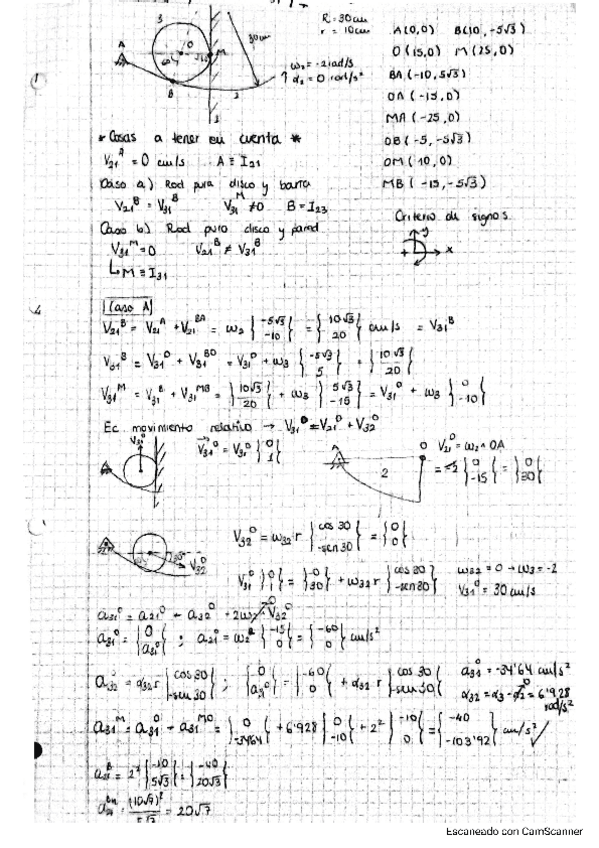 R = 30cm
r = 10cm
A(0,0) B(10, -5√3)
O(15,0) M(25,0)
BA(-10, 5√3)
OA(-15,0)
MA(-25,0)
OB(-5, -5√3)
OM(10,0)
MB(-15, -5√3)
3
A
O
M
B
30cm
2
1
ω₂ = -2 rad/s
α₂ = 0 rad/s²
* Cosas a tener en cuenta *
V₂₁ᴬ = 0 cm/s A ≡ I₂₁
Caso a) Rod pura disco y barra
V₂₁ᴮ = V₃₁ᴮ V₃₁ᴹ ≠ 0 B ≡ I₂₃
Caso b) Rod pura disco y pared
V₃₁ᴹ = 0 V₂₁ᴮ ≠ V₃₁ᴮ
↳ M ≡ I₃₁
Criterio de signos
y
+ x
Caso A
V₂₁ᴮ = V₂₁ᴬ + V₂₁ᴮᴬ = ω₂ {-5√3 / -10} = {10√3 / 20} cm/s = V₃₁ᴮ
V₃₁ᴮ = V₃₁ᴼ + V₃₁ᴮᴼ = V₃₁ᴼ + ω₃ {-5√3 / 5} = {10√3 / 20}
V₃₁ᴹ = V₃₁ᴮ + V₃₁ᴹᴮ = {10√3 / 20} + ω₃ {5√3 / -15} = V₃₁ᴼ + ω₃ {0 / -10}
Ec. movimiento relativo → V₃₁ᴼ = V₂₁ᴼ + V₃₂ᴼ
V₃₁ᴼ = V₃₁ᴼ {0 / 1}
O
2
V₂₁ᴼ = ω₂ ∧ OA
= -2 {0 / -15} = {0 / 30}
30°
V₃₂ᴼ
V₃₂ᴼ = ω₃₂ r {cos 30 / -sen 30} = {0 / 0}
V₃₁ᴼ {0 / 1} = {0 / -30} + ω₃₂ r {cos 30 / -sen 30}
ω₃₂ = 0 → ω₃ = -2
V₃₁ᴼ = 30 cm/s
a₃₁ᴼ = a₂₁ᴼ + a₃₂ᴼ + 2ω₂ ∧ V₃₂ᴼ
a₃₁ᴼ = {0 / a₃₁ᴼ} ; a₂₁ᴼ = ω₂² {-15 / 0} = {-60 / 0} cm/s²
a₃₂ᴼ = α₃₂ r {cos 30 / -sen 30} ; {0 / a₃₁ᴼ} = {-60 / 0} + α₃₂ r {cos 30 / -sen 30}
a₃₁ᴼ = -34'64 cm/s²
α₃₂ = α₃ - α₂ = 6'928 rad/s²
a₃₁ᴹ = a₃₁ᴼ + a₃₁ᴹᴼ = {0 / -34'64} + 6'928 {0 / -10} + 2² {-10 / 0} = {-40 / -103'92} cm/s²
a₂₁ᴮ = 2² {-10 / 5√3} = {-40 / 20√3}
= 20√7
Escaneado con CamScanner